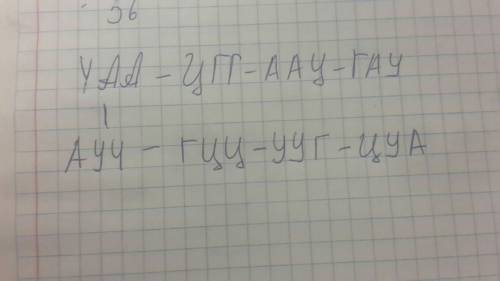 56
УАА - ЦГГ - ААЦ - ГАУ
АУУ - ГЦЦ - УУГ - ЦУА